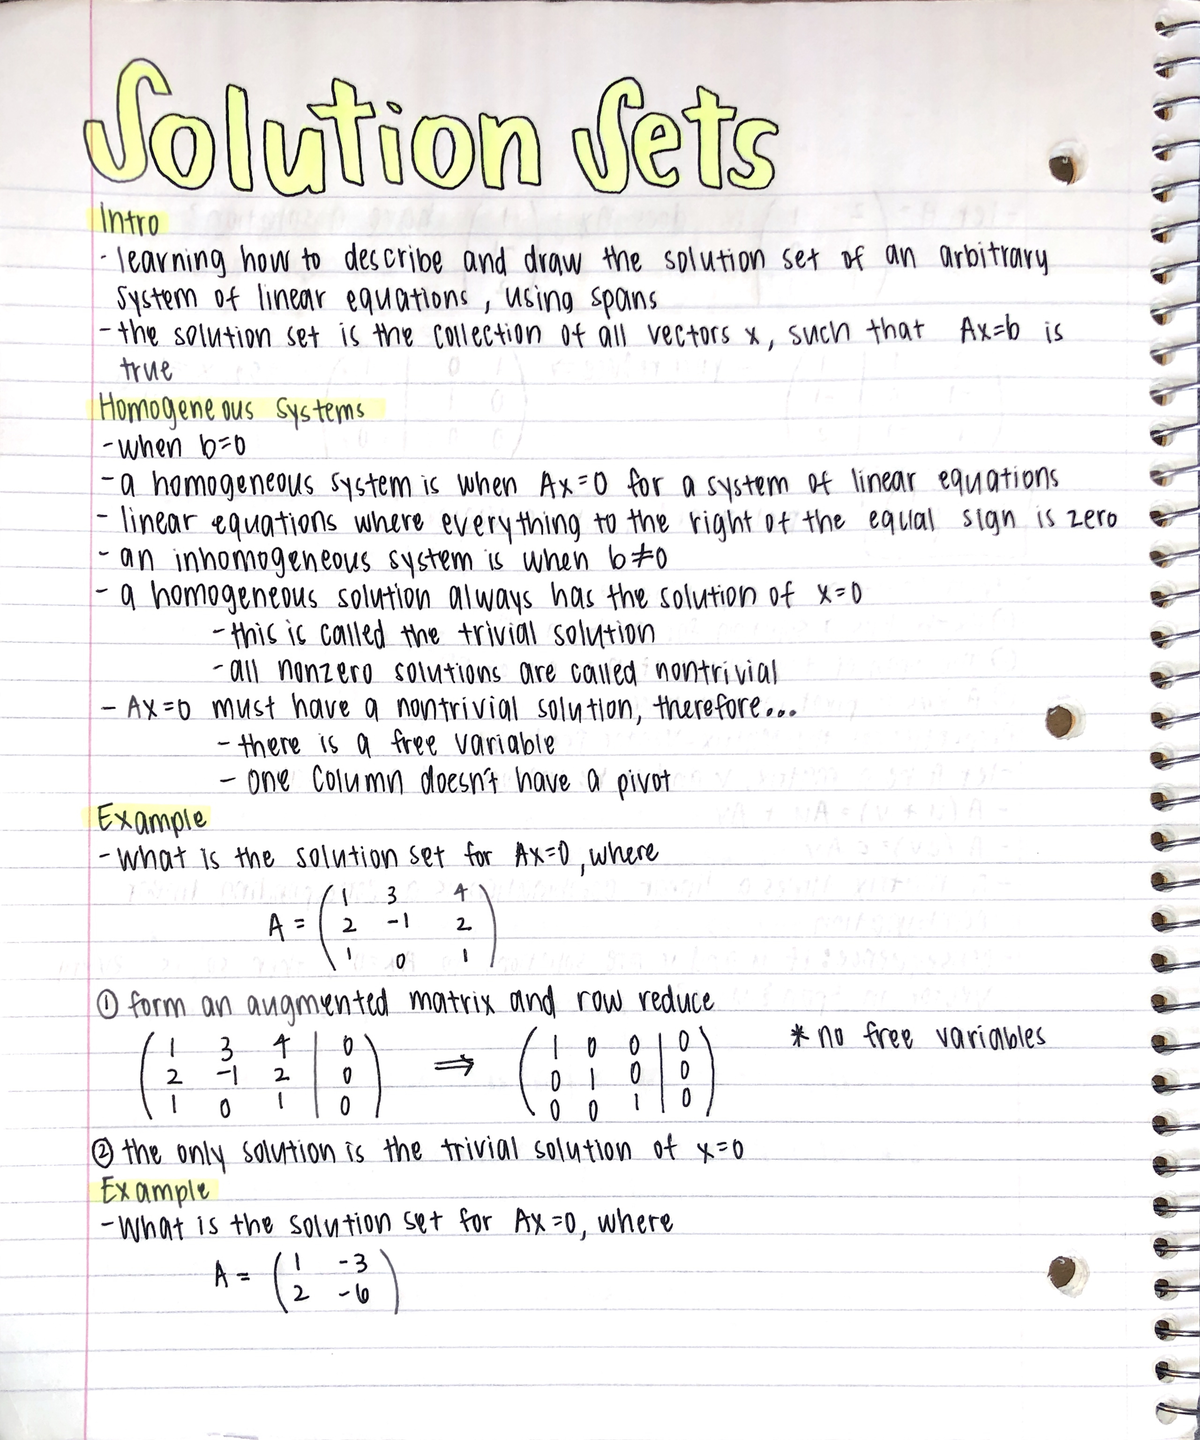 Solution Sets
Intro
- learning how to describe and draw the solution set of an arbitrary
system of linear equations, using spans
- the solution set is the collection of all vectors x, such that Ax=b is
true
Homogeneous Systems
- when b=0
- a homogeneous system is when Ax=0 for a system of linear equations
- linear equations where everything to the right of the equal sign is zero
- an inhomogeneous system is when b≠0
- a homogeneous solution always has the solution of x=0
- this is called the trivial solution
- all nonzero solutions are called nontrivial
- Ax=0 must have a nontrivial solution, therefore...
- there is a free variable
- one column doesn't have a pivot
Example
- What is the solution set for Ax=0, where
1 3 4
A = 2 -1 2
1 0 1
① form an augmented matrix and row reduce
1 3 4 | 0 1 0 0 | 0 * no free variables
2 -1 2 | 0 ⇒ 0 1 0 | 0
1 0 1 | 0 0 0 1 | 0
② the only solution is the trivial solution of x=0
Example
- What is the solution set for Ax=0, where
A = 1 -3
2 -6